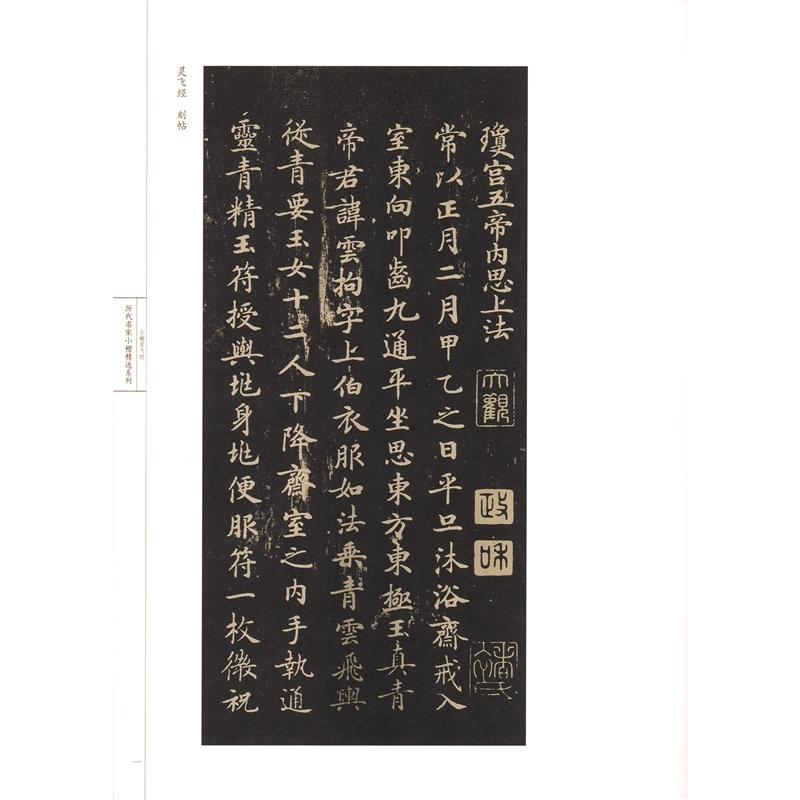 灵飞经 刻帖
历代名家小楷精选系列
小楷灵飞经
一
瓊宫五帝内思上法
大觀
政
和
常以正月二月甲乙之日平旦沐浴齋戒入
室東向叩齒九通平坐思東方東極玉真青
帝君諱雲拘字上伯衣服如法乘青雲飛輿
從青要玉女十二人下降齋室之内手執通
靈青精玉符授與兆身兆便服符一枚微祝